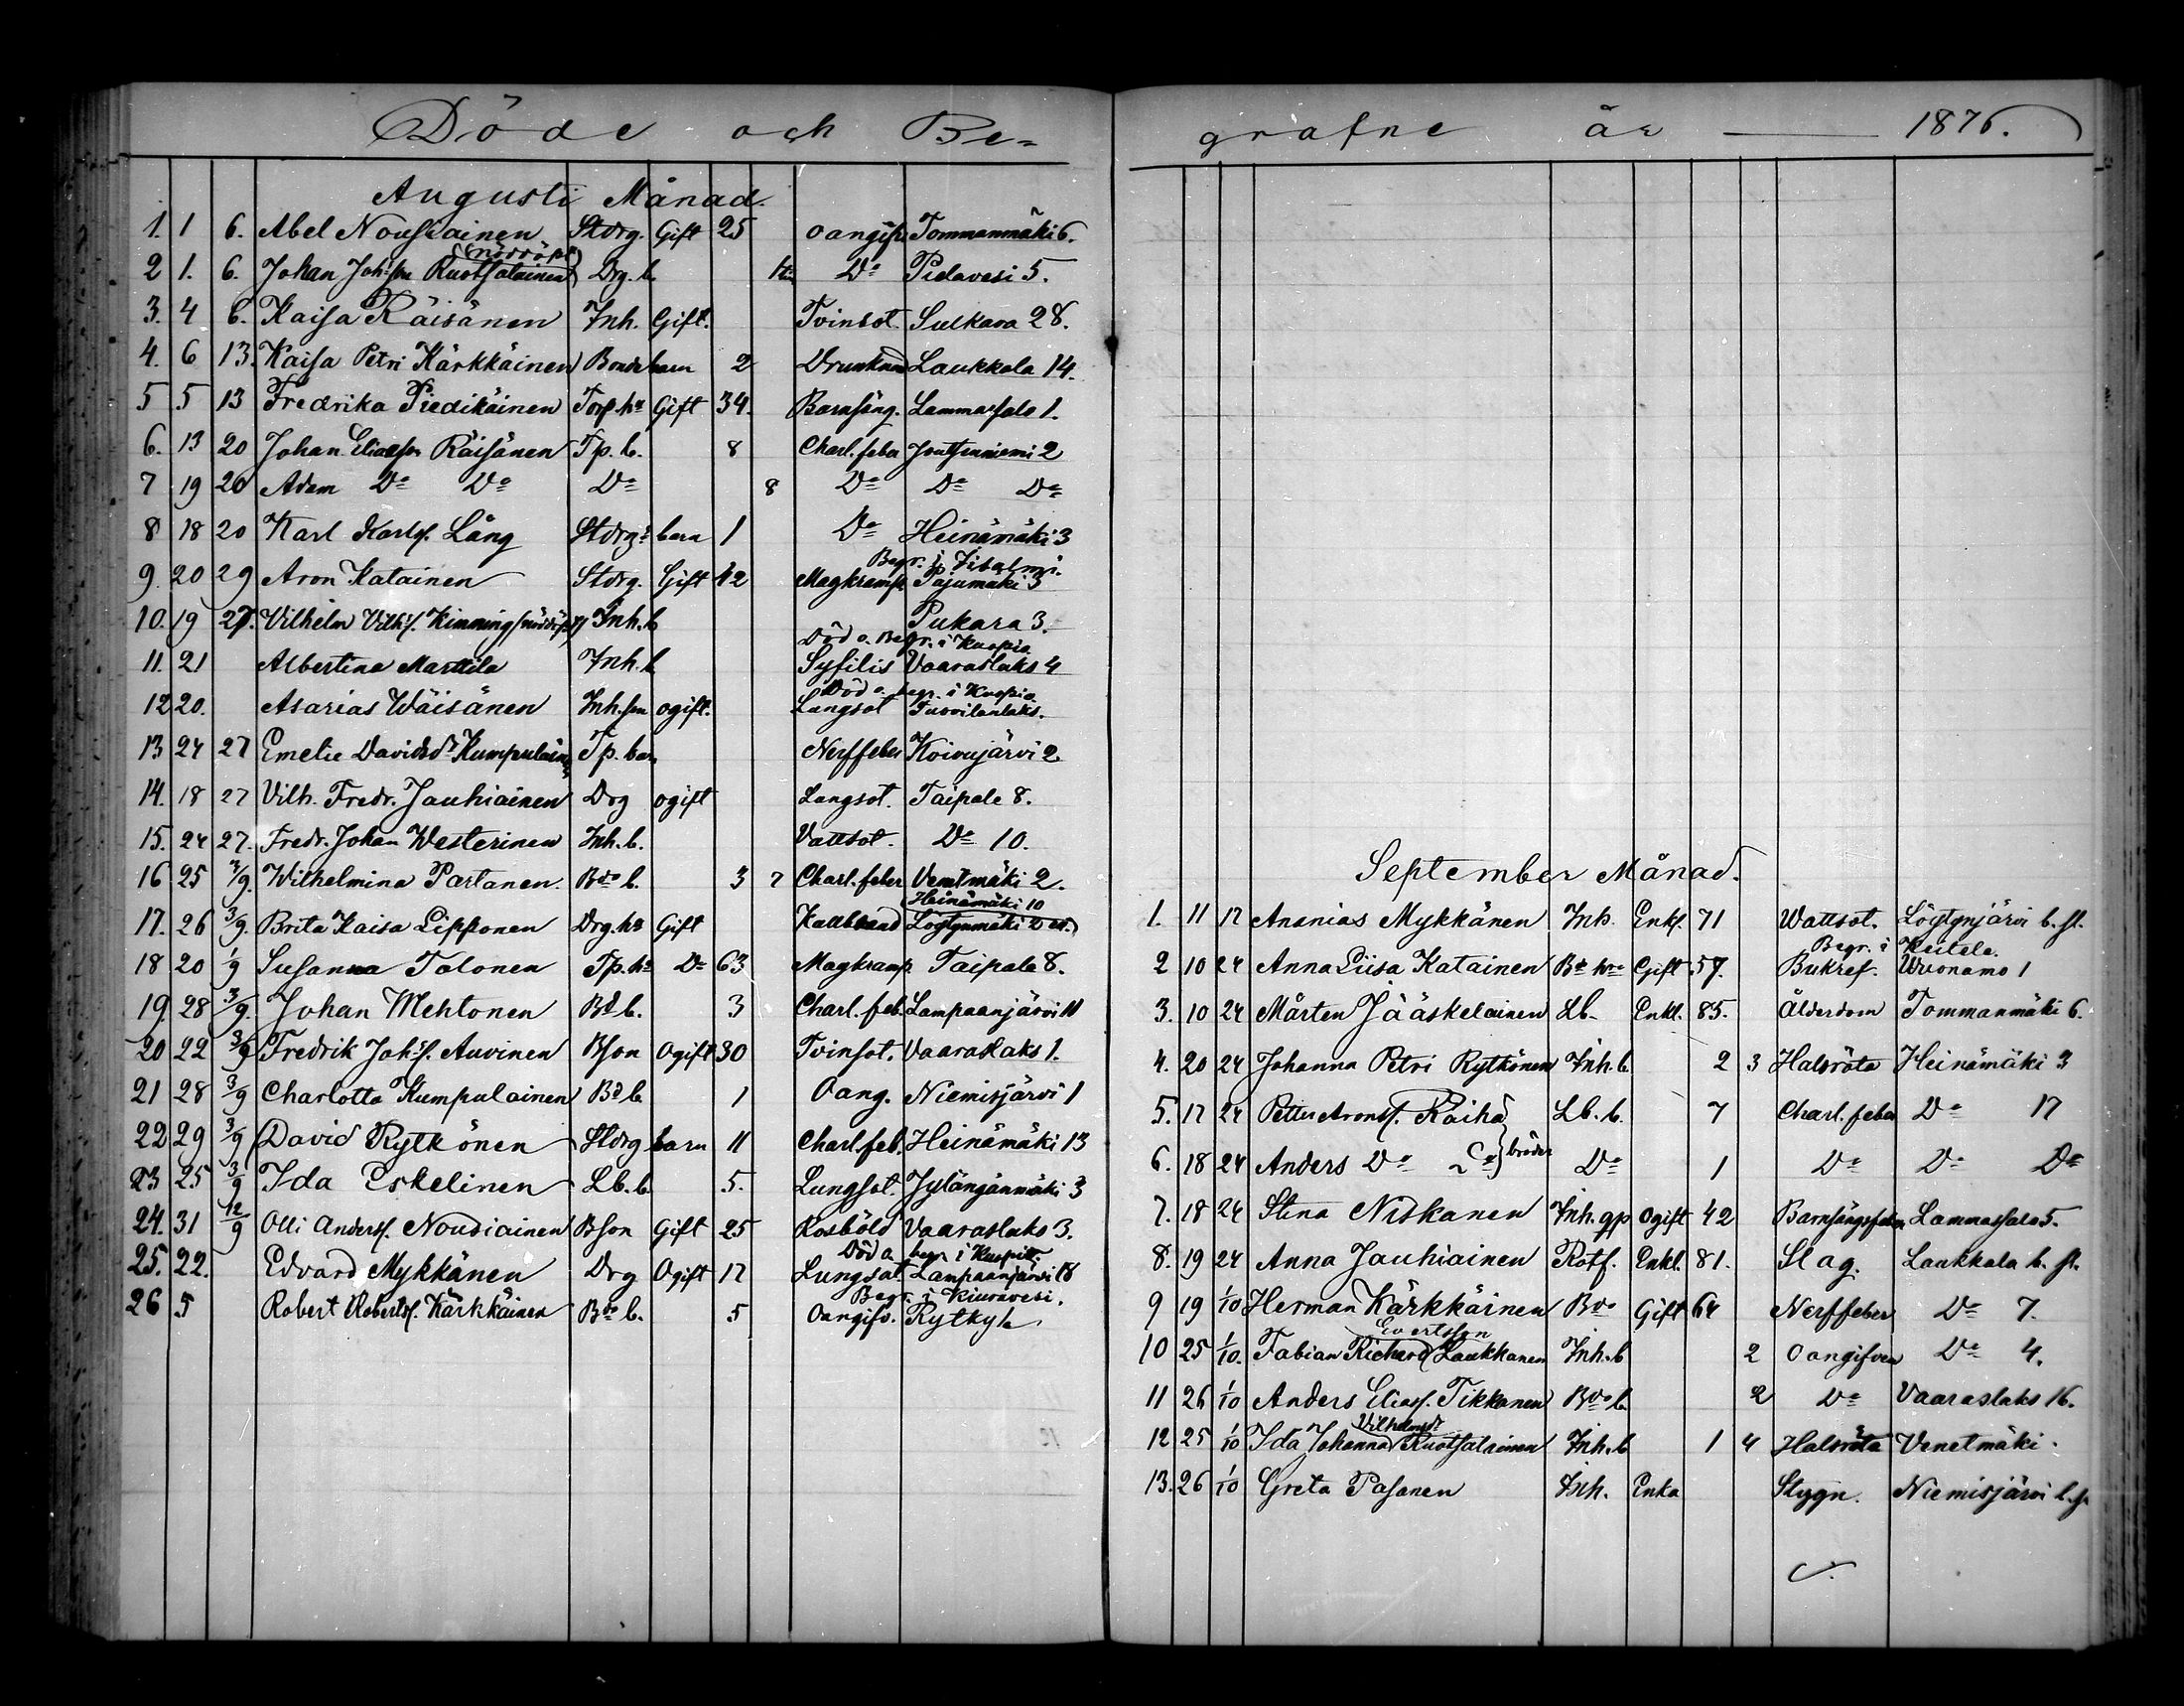 Döde och Be=
Augusti Månad.
1. 1 6. Abel Nousiainen Stdrg. Gift 25 oangifv. Tommanmäki 6.
(nöddöpt)
2 1. 6. Johan Joh:son Ruotsalainen Drg. b. Do Pielavesi 5.
3. 4 6. Kaisa Räisänen Inh. Gift. Tvinsot. Sulkava 28.
4. 6 13. Kaisa Petri Kärkkäinen Bonde barn 2 Drunknad Laukkala 14.
5 5 13 Fredrika Piedikäinen Torp. hu Gift 34. Barnsäng. Lammassalo 1.
6. 13 20 Johan Eliasson Räisänen Tp. b. 8 Charl. feber Joutsenniemi 2
7 19 20 Adam Do Do Do 8 Do Do Do
8 18 20 Karl Karlss. Lång Stdrgs barn 1 Do Heinämäki 3
Begr. i Iisalmi.
9. 20 29 Aron Katainen Stdrg. Gift 42 Magkramp Pajumäki 3
10. 19 27. Vilhelm Vilhss. Kimming (nöddöpt) Inh. b Pukara 3.
Död o. Begr. i Kuopio
11. 21 Albertina Marttila Inh. b Syfilis Vaaraslaks 4
Död o. begr. i Kuopio
12 20. Asarias Wäisänen Inh. son ogift. Lungsot Tuovilanlaks.
13 24 27 Emelie Davidsdr Kumpulainen Tp. barn Nerffeber Koivujärvi 2
14. 18 27 Vilh. Fredr. Jauhiainen Drg ogift Lungsot. Taipale 8.
15. 24 27. Fredr. Johan Westerinen Inh. b. Vattsot. Do 10.
16 25 3/9. Wilhelmina Partanen. Bdo b. 3 7 Charl. feber Venetmäki 2.
Heinämäki 10
17. 26 3/9. Brita Kaisa Lipponen Drg. hu Gift Kallbrand Löytynmäki 2
18 20 1/9 Susanna Tolonen Tp. hu Do 63 Magkramp Taipale 8.
19. 28 3/9. Johan Mehtonen Bd b. 3 Charl. feb. Lampaanjärvi 11
20 22 3/9 Fredrik Johss. Auvinen Bson Ogift 30 Tvinsot. Vaaraslaks 1.
21 28 3/9 Charlotta Kumpulainen Bd b 1 Oang. Niemisjärvi 1
22 29 3/9 David Rytkönen Stdrg barn 11 Charl. feb. Heinämäki 13
23 25 3/9 Ida Eskelinen Lb. b. 5. Lungsot. Jylängänmäki 3
24. 31 12/9 Olli Anderss. Nousiainen Bson Gift 25 Rosböld Vaaraslaks 3.
Död o. begr. i Kuopio.
25. 22. Edvard Mykkänen Drg Ogift 17 Lungsot Lampaanjärvi 18
Begr. i Kiuruvesi.
26 5 Robert Robertss. Kärkkäinen Bdo b. 5 Oangifv. Rytky b
grafne år 1876.
September Månad.
1. 11 17 Ananias Mykkänen Inh. Enkl. 71 Wattsot. Löytynjärvi b. st.
Begr. i Keitele.
2 10 24 Anna Liisa Katainen Gift 57. Bukref. Wuonamo 1
3. 10 24 Mårten Jääskelainen Lb. Enkl. 85. Ålderdom Tommanmäki 6.
4. 20 24 Johanna Petri Rytkönen Inh. b. 2 3 Halsröta Heinämäki 3
5. 17 24 Petter Aronss. Raiha Lb. b. 7 Charl. feber Do 17
6. 18 24 Anders Do Do bröder Do 1 Do Do Do
7. 18 24 Stina Niskanen Inh. qp Ogift 42 Barnsängsfeber Lammassalo 5.
8. 19 24 Anna Jauhiainen Rotf. Enkl. 81. Slag. Laukkala b. st.
9 19 1/10 Herman Kärkkäinen Bdo Gift 64 Nerffeber Do 7.
Evertsson
10 25 1/10. Fabian Richard Laukkanen Inh. b 2 Oangifven Do 4.
11 26 1/10 Anders Eliass. Tikkanen Bdo b. 2 Do Vaaraslaks 16.
Vilhelmsdr
12 25 1/10 Ida Johanna Ruotsalainen Inh. b 1 4 Halsröta Venetmäki.
13. 26 1/10 Greta Pasanen Inh. Enka Stygn. Niemisjärvi b. st